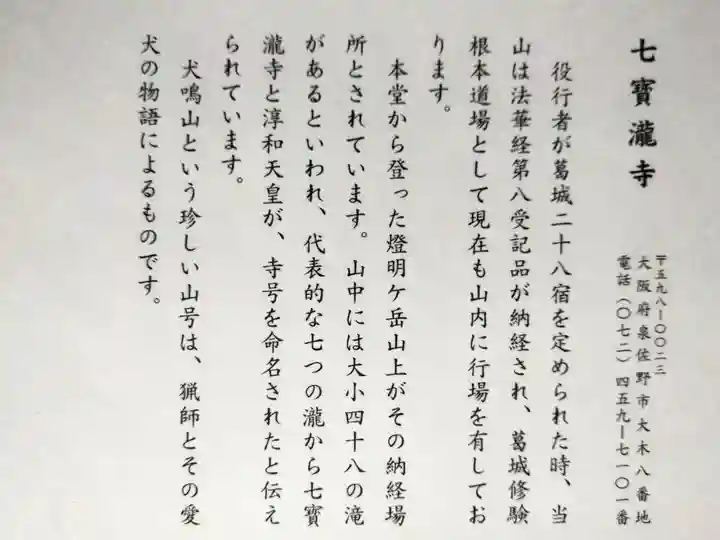 七寶瀧寺
〒五九八―〇〇二三
大阪府泉佐野市大木八番地
電話(〇七二)四五九―七一〇一番
役行者が葛城二十八宿を定められた時、当
山は法華経第八受記品が納経され、葛城修験
根本道場として現在も山内に行場を有してお
ります。
本堂から登った燈明ケ岳山上がその納経場
所とされています。山中には大小四十八の滝
があるといわれ、代表的な七つの瀧から七寶
瀧寺と淳和天皇が、寺号を命名されたと伝え
られています。
犬鳴山という珍しい山号は、猟師とその愛
犬の物語によるものです。